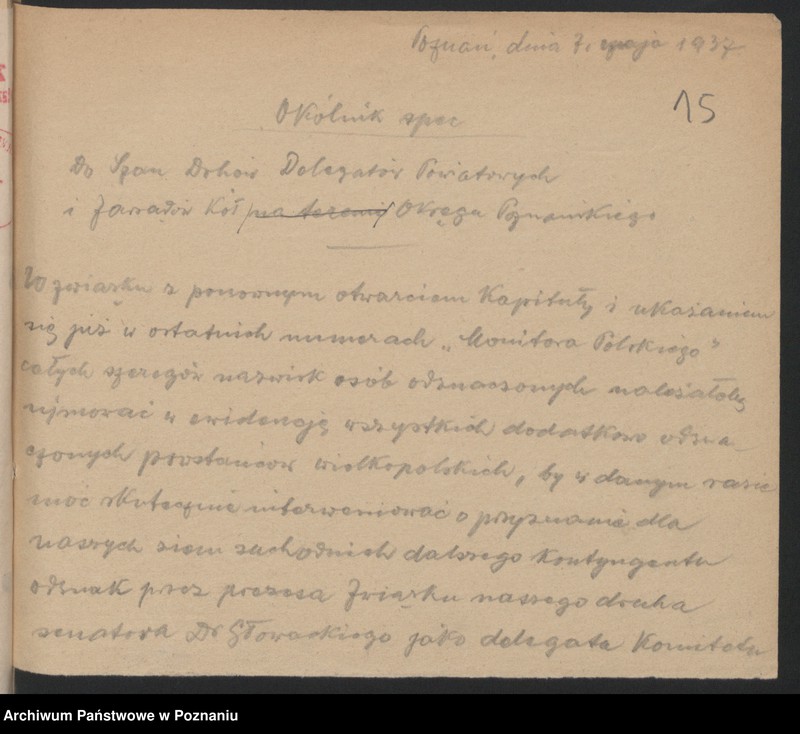 Poznań, dnia 7. maja 1937
15
Okólnik spec
Do Szan Drhów Delegatów Powiatowych
i Zarządów Kół na terenie Okręgu Poznańskiego
W związku z ponownym otwarciem Kapituły i ukazaniem
się już w ostatnich numerach „Monitora Polskiego"
całych szeregów nazwisk osób odznaczonych należałoby
ujmować w ewidencję wszystkich dodatkowo odzna-
czonych powstańców wielkopolskich, by w danym razie
móc skutecznie interweniować o przyznanie dla
naszych ziem zachodnich dalszego kontyngentu
odznak przez prezesa Związku naszego druha
senatora Dr Głowackiego jako delegata Komitetu
Archiwum Państwowe w Poznaniu